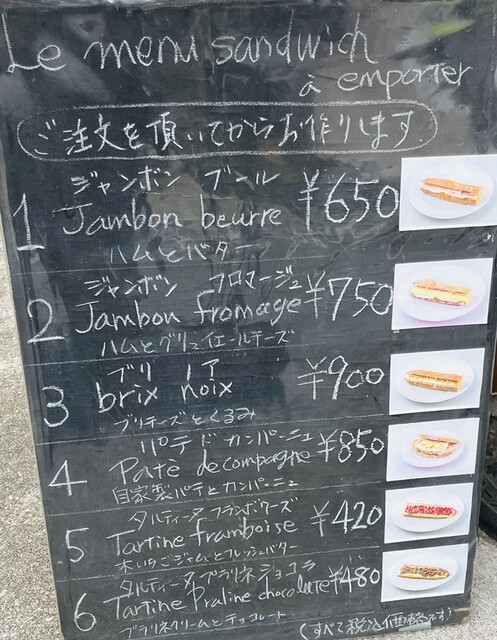 Le menu sandwich
à emporter
ご注文を頂いてからお作りします
ジャンボン ブール
1 Jambon beurre ¥650
ハムとバター
ジャンボン フロマージュ
2 Jambon fromage ¥750
ハムとグリュイエールチーズ
ブリ ノア
3 brix noix ¥900
ブリチーズとくるみ
パテ ド カンパーニュ
4 Pate de compagne ¥850
自家製パテとカンパーニュ
タルティーヌ フランボワーズ
5 Tartine framboise ¥420
木いちごジャムとフレッシュバター
タルティーヌ プラリネ ショコラ
6 Tartine Praline chocolate ¥480
プラリネクリームとチョコレート
(すべて税込価格です)